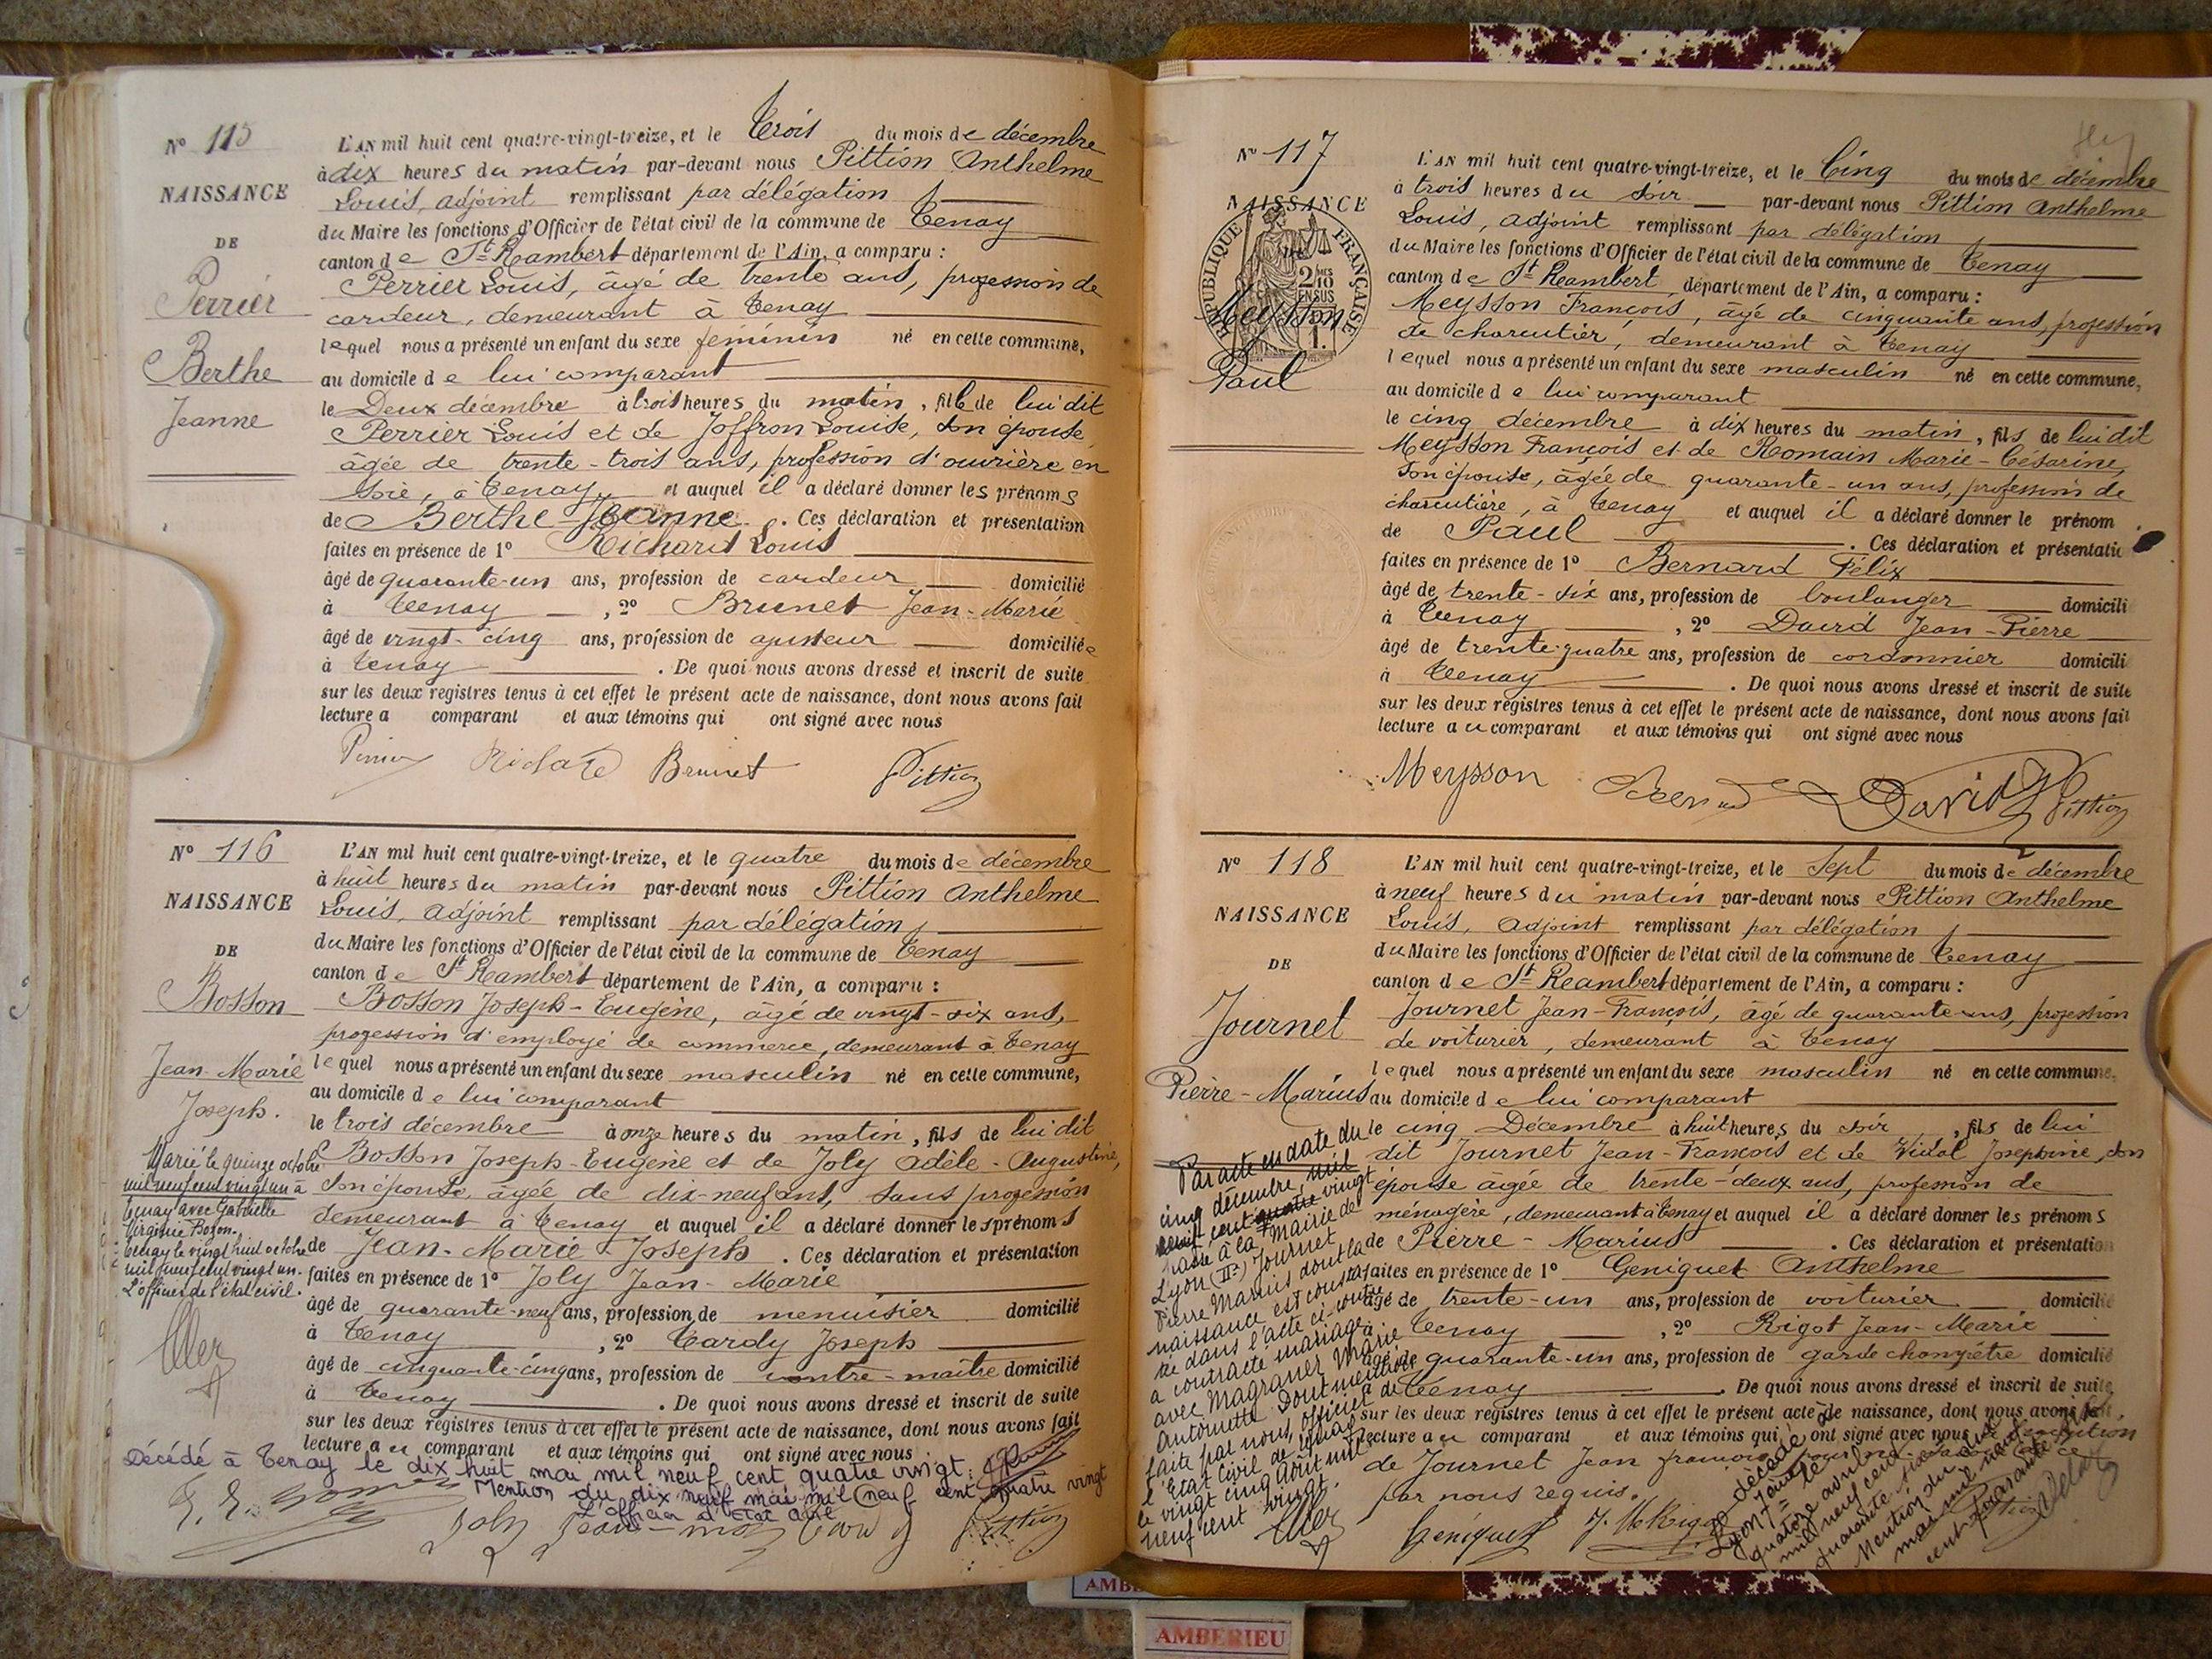 N° 115
NAISSANCE
DE
Perrier
Berthe
Jeanne
L'AN mil huit cent quatre-vingt-treize, et le Trois du mois de décembre
à dix heures du matin par-devant nous Pittion Anthelme
Louis, adjoint remplissant par délégation
du Maire les fonctions d'Officier de l'état civil de la commune de Tenay
canton de St Rambert département de l'Ain, a comparu :
Perrier Louis, âgé de trente ans, profession de
cardeur, demeurant à Tenay
lequel nous a présenté un enfant du sexe féminin né en cette commune,
au domicile de lui comparant
le Deux décembre à trois heures du matin, fille de lui dit
Perrier Louis et de Joffron Louise, son épouse,
âgée de trente-trois ans, profession d'ouvrière en
soie, à Tenay, et auquel il a déclaré donner les prénoms
de Berthe-Jeanne. Ces déclaration et présentation
faites en présence de 1° Richard Louis
âgé de quarante-un ans, profession de cardeur domicilié
à Tenay, 2° Brunet Jean-Marie
âgé de vingt-cinq ans, profession de ajusteur domicilié
à Tenay. De quoi nous avons dressé et inscrit de suite
sur les deux registres tenus à cet effet le présent acte de naissance, dont nous avons fait
lecture a comparant et aux témoins qui ont signé avec nous
Perrier Richard Brunet Pittion
N° 116
NAISSANCE
DE
Bosson
Jean-Marie
Joseph.
Marié le quinze octobre
mil neuf cent vingt un à
Tenay avec Gabrielle
Virginie Bozon.
Tenay le vingt huit octobre
mil neuf cent vingt un.
L'officier de l'état civil.
L'AN mil huit cent quatre-vingt-treize, et le quatre du mois de décembre
à huit heures du matin par-devant nous Pittion Anthelme
Louis, adjoint remplissant par délégation
du Maire les fonctions d'Officier de l'état civil de la commune de Tenay
canton de St Rambert département de l'Ain, a comparu :
Bosson Joseph-Eugène, âgé de vingt-six ans,
profession d'employé de commerce, demeurant à Tenay
lequel nous a présenté un enfant du sexe masculin né en cette commune,
au domicile de lui comparant
le trois décembre à onze heures du matin, fils de lui dit
Bosson Joseph-Eugène et de Joly Adèle-Augustine,
son épouse âgée de dix-neuf ans, sans profession
demeurant à Tenay et auquel il a déclaré donner les prénoms
de Jean-Marie-Joseph. Ces déclaration et présentation
faites en présence de 1° Joly Jean-Marie
âgé de quarante-neuf ans, profession de menuisier domicilié
à Tenay, 2° Tardy Joseph
âgé de cinquante-cinq ans, profession de contre-maître domicilié
à Tenay. De quoi nous avons dressé et inscrit de suite
sur les deux registres tenus à cet effet le présent acte de naissance, dont nous avons fait
lecture au comparant et aux témoins qui ont signé avec nous.
Décédé à Tenay le dix huit mai mil neuf cent quatre vingt.
Mention du dix neuf mai mil neuf cent quatre vingt
L'officier d'état civil
Joly Jean-mari Tardy Pittion
N° 117
NAISSANCE
DE
RÉPUBLIQUE FRANÇAISE
2 10MES
EN SUS
Meysson
Paul
L'AN mil huit cent quatre-vingt-treize, et le Cinq du mois de décembre
à trois heures du soir par-devant nous Pittion Anthelme
Louis, adjoint remplissant par délégation
du Maire les fonctions d'Officier de l'état civil de la commune de Tenay
canton de St Rambert, département de l'Ain, a comparu :
Meysson François, âgé de cinquante ans, profession
de charcutier, demeurant à Tenay
lequel nous a présenté un enfant du sexe masculin né en cette commune,
au domicile de lui comparant
le cinq décembre à dix heures du matin, fils de lui dit
Meysson François et de Romain Marie-Césarine,
son épouse, âgée de quarante-un ans, profession de
charcutière, à Tenay et auquel il a déclaré donner le prénom
de Paul. Ces déclaration et présentatio
faites en présence de 1° Bernard Félix
âgé de trente-six ans, profession de boulanger domicili
à Tenay, 2° David Jean-Pierre
âgé de trente-quatre ans, profession de cordonnier domicili
à Tenay. De quoi nous avons dressé et inscrit de suite
sur les deux registres tenus à cet effet le présent acte de naissance, dont nous avons fait
lecture au comparant et aux témoins qui ont signé avec nous
Meysson Bernard David Pittion
N° 118
NAISSANCE
DE
Journet
Pierre-Marius
Par acte en date du
cinq décembre mil
neuf cent quatre vingt
passé à la Mairie de
Lyon (IIe) Journet
Pierre Marius dont la
naissance est consta
tée dans l'acte ci-contre
a contracté mariage
avec Magranner Marie
Antoinette Dont mention
faite par nous, officier
l'Etat Civil de Tenay
le vingt cinq Août mil
neuf cent vingt.
L'AN mil huit cent quatre-vingt-treize, et le Sept du mois de décembre
à neuf heures du matin par-devant nous Pittion Anthelme
Louis, adjoint remplissant par délégation
du Maire les fonctions d'Officier de l'état civil de la commune de Tenay
canton de St Rambert département de l'Ain, a comparu :
Journet Jean-François, âgé de quarante ans, profession
de voiturier, demeurant à Tenay
lequel nous a présenté un enfant du sexe masculin né en cette commune,
au domicile de lui comparant
le cinq Décembre à huit heures du soir, fils de lui
dit Journet Jean-François et de Vidal Joséphine, son
épouse âgée de trente-deux ans, profession de
ménagère, demeurant à Tenay et auquel il a déclaré donner les prénoms
de Pierre-Marius. Ces déclaration et présentation
faites en présence de 1° Geniquet Anthelme
âgé de trente-un ans, profession de voiturier domicilié
à Tenay, 2° Rigot Jean-Marie
âgé de quarante-un ans, profession de garde champêtre domicilié
à Tenay. De quoi nous avons dressé et inscrit de suite
sur les deux registres tenus à cet effet le présent acte de naissance, dont nous avons fait
lecture au comparant et aux témoins qui ont signé avec nous à l'exception
de Journet Jean françois pour ne savoir de ce
par nous requis.
Géniquet J. M. Rigot Pittion
décédé à
Lyon 7e le
quatorze avril
mil neuf cent
quarante six
Mention du
mai mil neuf
cent quarante six
AMBERIEU